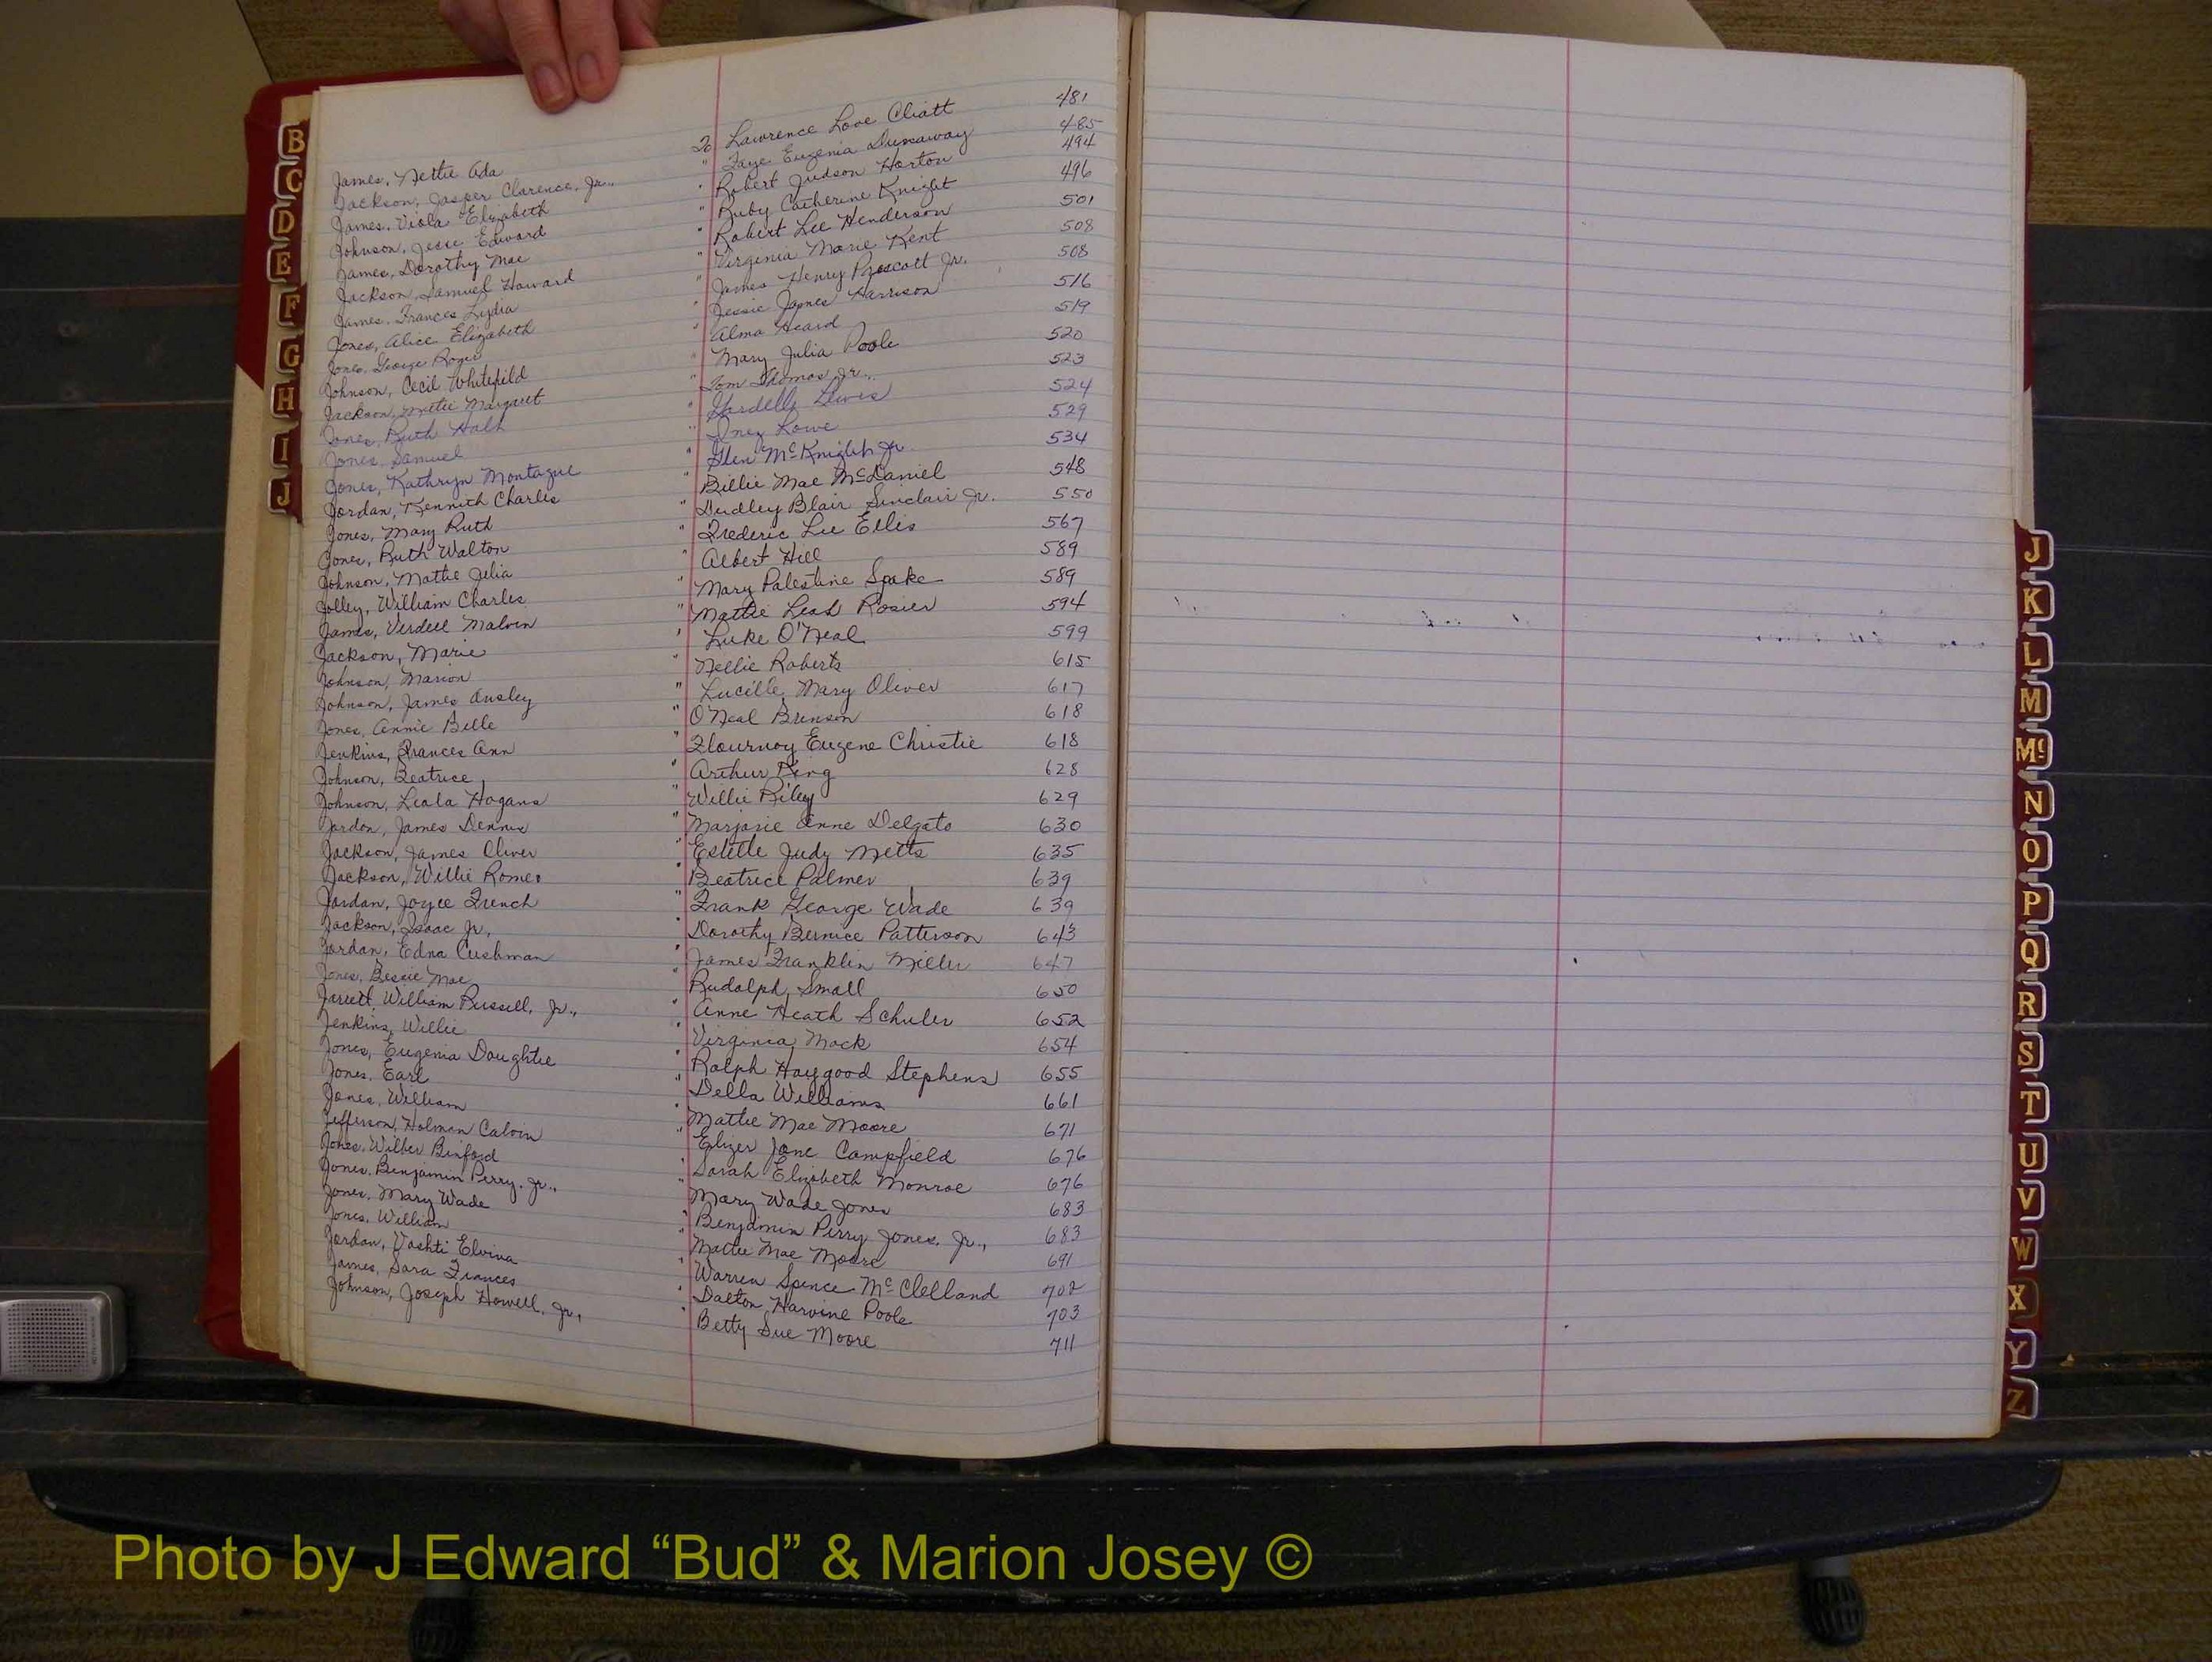 James, Nettie Ada To Lawrence Love Cliatt 481
Jackson, Jasper Clarence, Jr., " Faye Eugenia Dunaway 485
James, Viola Elizabeth " Robert Judson Horton 494
Johnson, Jesse Edward " Ruby Catherine Knight 496
James, Dorothy Mae " Robert Lee Henderson 501
Jackson, Samuel Howard " Virginia Marie Kent 508
James, Frances Lydia " James Henry Prescott Jr. 508
Jones, Alice Elizabeth " Jessie James Harrison 516
Jones, George Roger " Alma Heard 519
Johnson, Cecil Whitefield " Mary Julia Poole 520
Jackson, Mettie Margaret " Tom Thomas Jr., 523
Jones, Ruth Hall " Lewis 524
Jones, Samuel " Inez Lowe 529
Jones, Kathryn Montague " Glen McKnight Jr. 534
Jordan, Kennith Charles " Billie Mae McDaniel 548
Jones, Mary Ruth " Dudley Blair Sinclair Jr. 550
Jones, Ruth Walton " Frederic Lee Ellis 567
Johnson, Mattie Julia " Albert Hill 589
Jolley, William Charles " Mary Palestine Spake 589
James, Verdell Malvin " Mattie Leah Rosier 594
Jackson, Marie " Luke O'Neal 599
Johnson, Marion " Nellie Roberts 615
Johnson, James Ansley " Lucille Mary Oliver 617
Jones, Annie Belle " O'Neal Brinson 618
Jenkins, Frances Ann " Flournoy Eugene Christie 618
Johnson, Beatrice " Arthur King 628
Johnson, Leala Hogans " Willie Riley 629
Jordon, James Dennis " Marjorie Anne Delgato 630
Jackson, James Oliver " Estelle Judy Metts 635
Jackson, Willie Romeo " Beatrice Palmer 639
Jordan, Joyce French " Frank George Wade 639
Jackson, Isaac Jr., " Dorothy Bernice Patterson 643
Jordan, Edna Cushman " James Franklin Miller 647
Jones, Bessie Mae " Rudolph Small 650
Jarrett, William Russell, Jr., " Anne Heath Schuler 652
Jenkins, Willie " Virginia Mack 654
Jones, Eugenia Doughtie " Ralph Haygood Stephens 655
Jones, Earl " Della Williams 661
Jones, William " Mattie Mae Moore 671
Jefferson, Holman Calvin " Elizer Jane Campfield 676
Jones, Wilber Binford " Sarah Elizabeth Monroe 676
Jones, Benjamin Perry, Jr., " Mary Wade Jones 683
Jones, Mary Wade " Benjamin Perry Jones, Jr., 683
Jones, William " Mattie Mae Moore 691
Jordan, Vashti Elvina " Warren Spence McClelland 702
James, Sara Frances " Dalton Harvine Poole 703
Johnson, Joseph Howell, Jr., " Betty Sue Moore 711
B
C
D
E
F
G
H
I
J
J
K
L
M
Mc
N
O
P
Q
R
S
T
U
V
W
X
Y
Z
Photo by J Edward “Bud” & Marion Josey ©